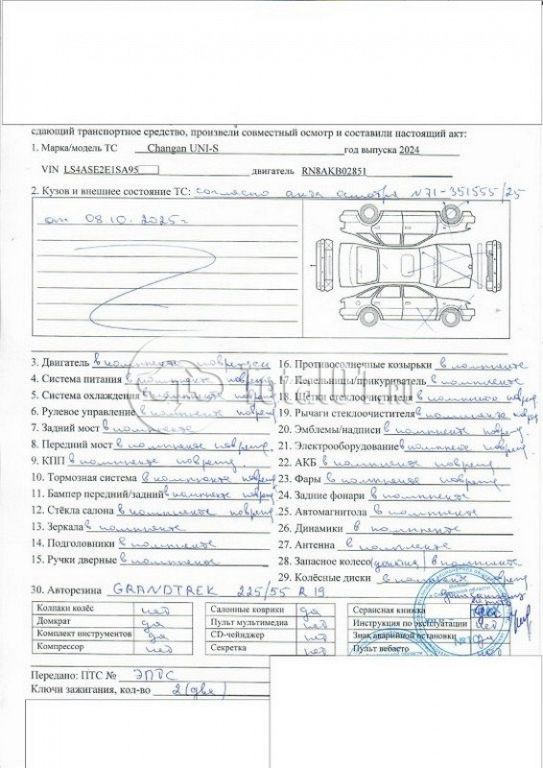 сдающий транспортное средство, произвели совместный осмотр и составили настоящий акт:
1. Марка/модель ТС Changan UNI-S год выпуска 2024
VIN LS4ASE2E1SA95 двигатель RN8AKB02851
2. Кузов и внешнее состояние ТС: согласно акта осмотра №71-351555/25
от 08.10.2025г
3. Двигатель в комплекте поврежден
4. Система питания в комплекте поврежд
5. Система охлаждения в комплекте повреж
6. Рулевое управление в комплекте поврежд
7. Задний мост в комплекте
8. Передний мост в комплекте поврежд
9. КПП в комплекте поврежд
10. Тормозная система в комплекте поврежд
11. Бампер передний/задний в комплекте поврежд
12. Стёкла салона в комплекте поврежд
13. Зеркала в комплекте
14. Подголовники в комплекте
15. Ручки дверные в комплекте
16. Противосолнечные козырьки в комплекте
17. Пепельницы/прикуриватель в комплекте
18. Щётки стеклоочистителя в комплекте повреж
19. Рычаги стеклоочистителя в комплекте повреж
20. Эмблемы/надписи в комплекте поврежд
21. Электрооборудование в комплекте поврежд
22. АКБ в комплекте поврежд
23. Фары в комплекте поврежд
24. Задние фонари в комплекте
25. Автомагнитола в комплекте
26. Динамики в комплекте
27. Антенна в комплекте
28. Запасное колесо (докатка) в комплекте
29. Колёсные диски в комплекте поврежд
30. Авторезина GRANDTREK 225/55 R 19
Колпаки колёс нет Салонные коврики да Сервисная книжка
Домкрат да Пульт мультимедиа нет Инструкция по эксплуатации нет
Комплект инструментов да CD-чейнджер нет Знак аварийной остановки
Компрессор нет Секретка нет Пульт вебасто нет
Передано: ПТС № ЭПТС
Ключи зажигания, кол-во 2 (два)